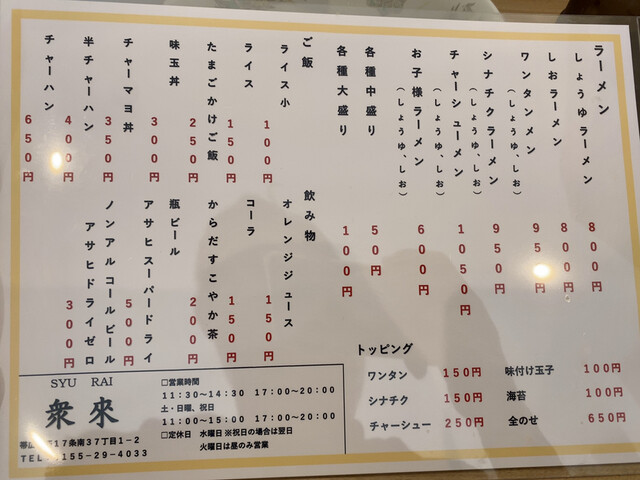 ラーメン
しょうゆラーメン 800円
しおラーメン 800円
ワンタンメン 950円
(しょうゆ、しお)
シナチクラーメン 950円
(しょうゆ、しお)
チャーシューメン 1050円
(しょうゆ、しお)
お子様ラーメン 600円
(しょうゆ、しお)
各種中盛り 50円
各種大盛り 100円
ご飯
ライス小 100円
ライス 150円
たまごかけご飯 250円
味玉丼 300円
チャーマヨ丼 350円
半チャーハン 400円
チャーハン 650円
飲み物
オレンジジュース 150円
コーラ 150円
からだすこやか茶 200円
瓶ビール
アサヒスーパードライ 500円
ノンアルコールビール
アサヒドライゼロ 300円
トッピング
ワンタン 150円 味付け玉子 100円
シナチク 150円 海苔 100円
チャーシュー 250円 全のせ 650円
SYU RAI
衆來
17条南37丁目1-2
TEL 155-29-4033
□営業時間
11:30~14:30 17:00~20:00
土・日曜、祝日
11:00~15:00 17:00~20:00
□定休日 水曜日 ※祝日の場合は翌日
火曜日は昼のみ営業